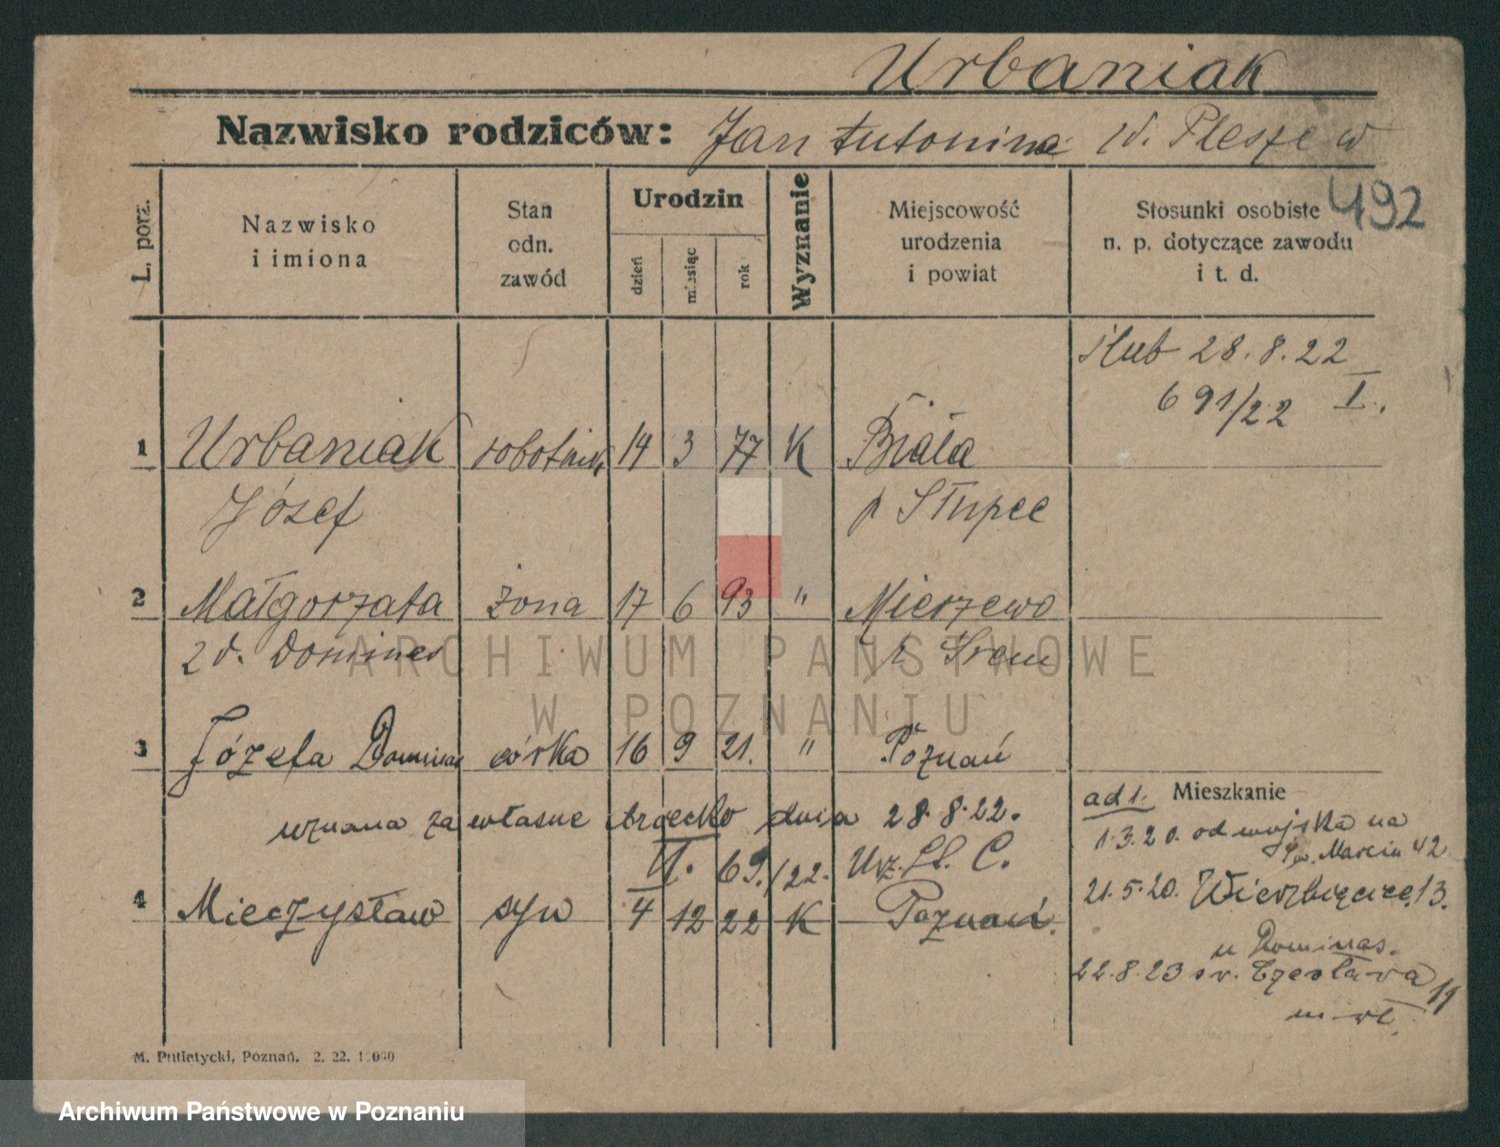 Urbaniak
Nazwisko rodziców: Jan Antonina d. Pleszew
492
L. porz.
Nazwisko
i imiona
Stan
odn.
zawód
Urodzin
dzień
miesiąc
rok
Wyznanie
Miejscowość
urodzenia
i powiat
Stosunki osobiste
n. p. dotyczące zawodu
i t. d.
ślub 28.8.22
691/22 I.
1 Urbaniak robotnik 14 3 77 K Biała
Józef p Słupce
2 Małgorzata żona 17 6 93 " Mierzewo
z d. Dominas p. Śrem
3 Józefa Dominas córka 16 9 21. " Poznań
uznana za własne dziecko dnia 28.8.22.
69./22. Urz. St. C.
4 Mieczysław syn 4 12 22 K Poznań.
Mieszkanie
ad 1.
1.3.20. od wojska na
Św. Marcin 42
21.5.20. Wierzbięcice 13.
u Dominas.
22.8.23 św. Czesława 11
M. Putiatycki, Poznań. 2. 22.
ARCHIWUM PAŃSTWOWE
W POZNANIU
Archiwum Państwowe w Poznaniu